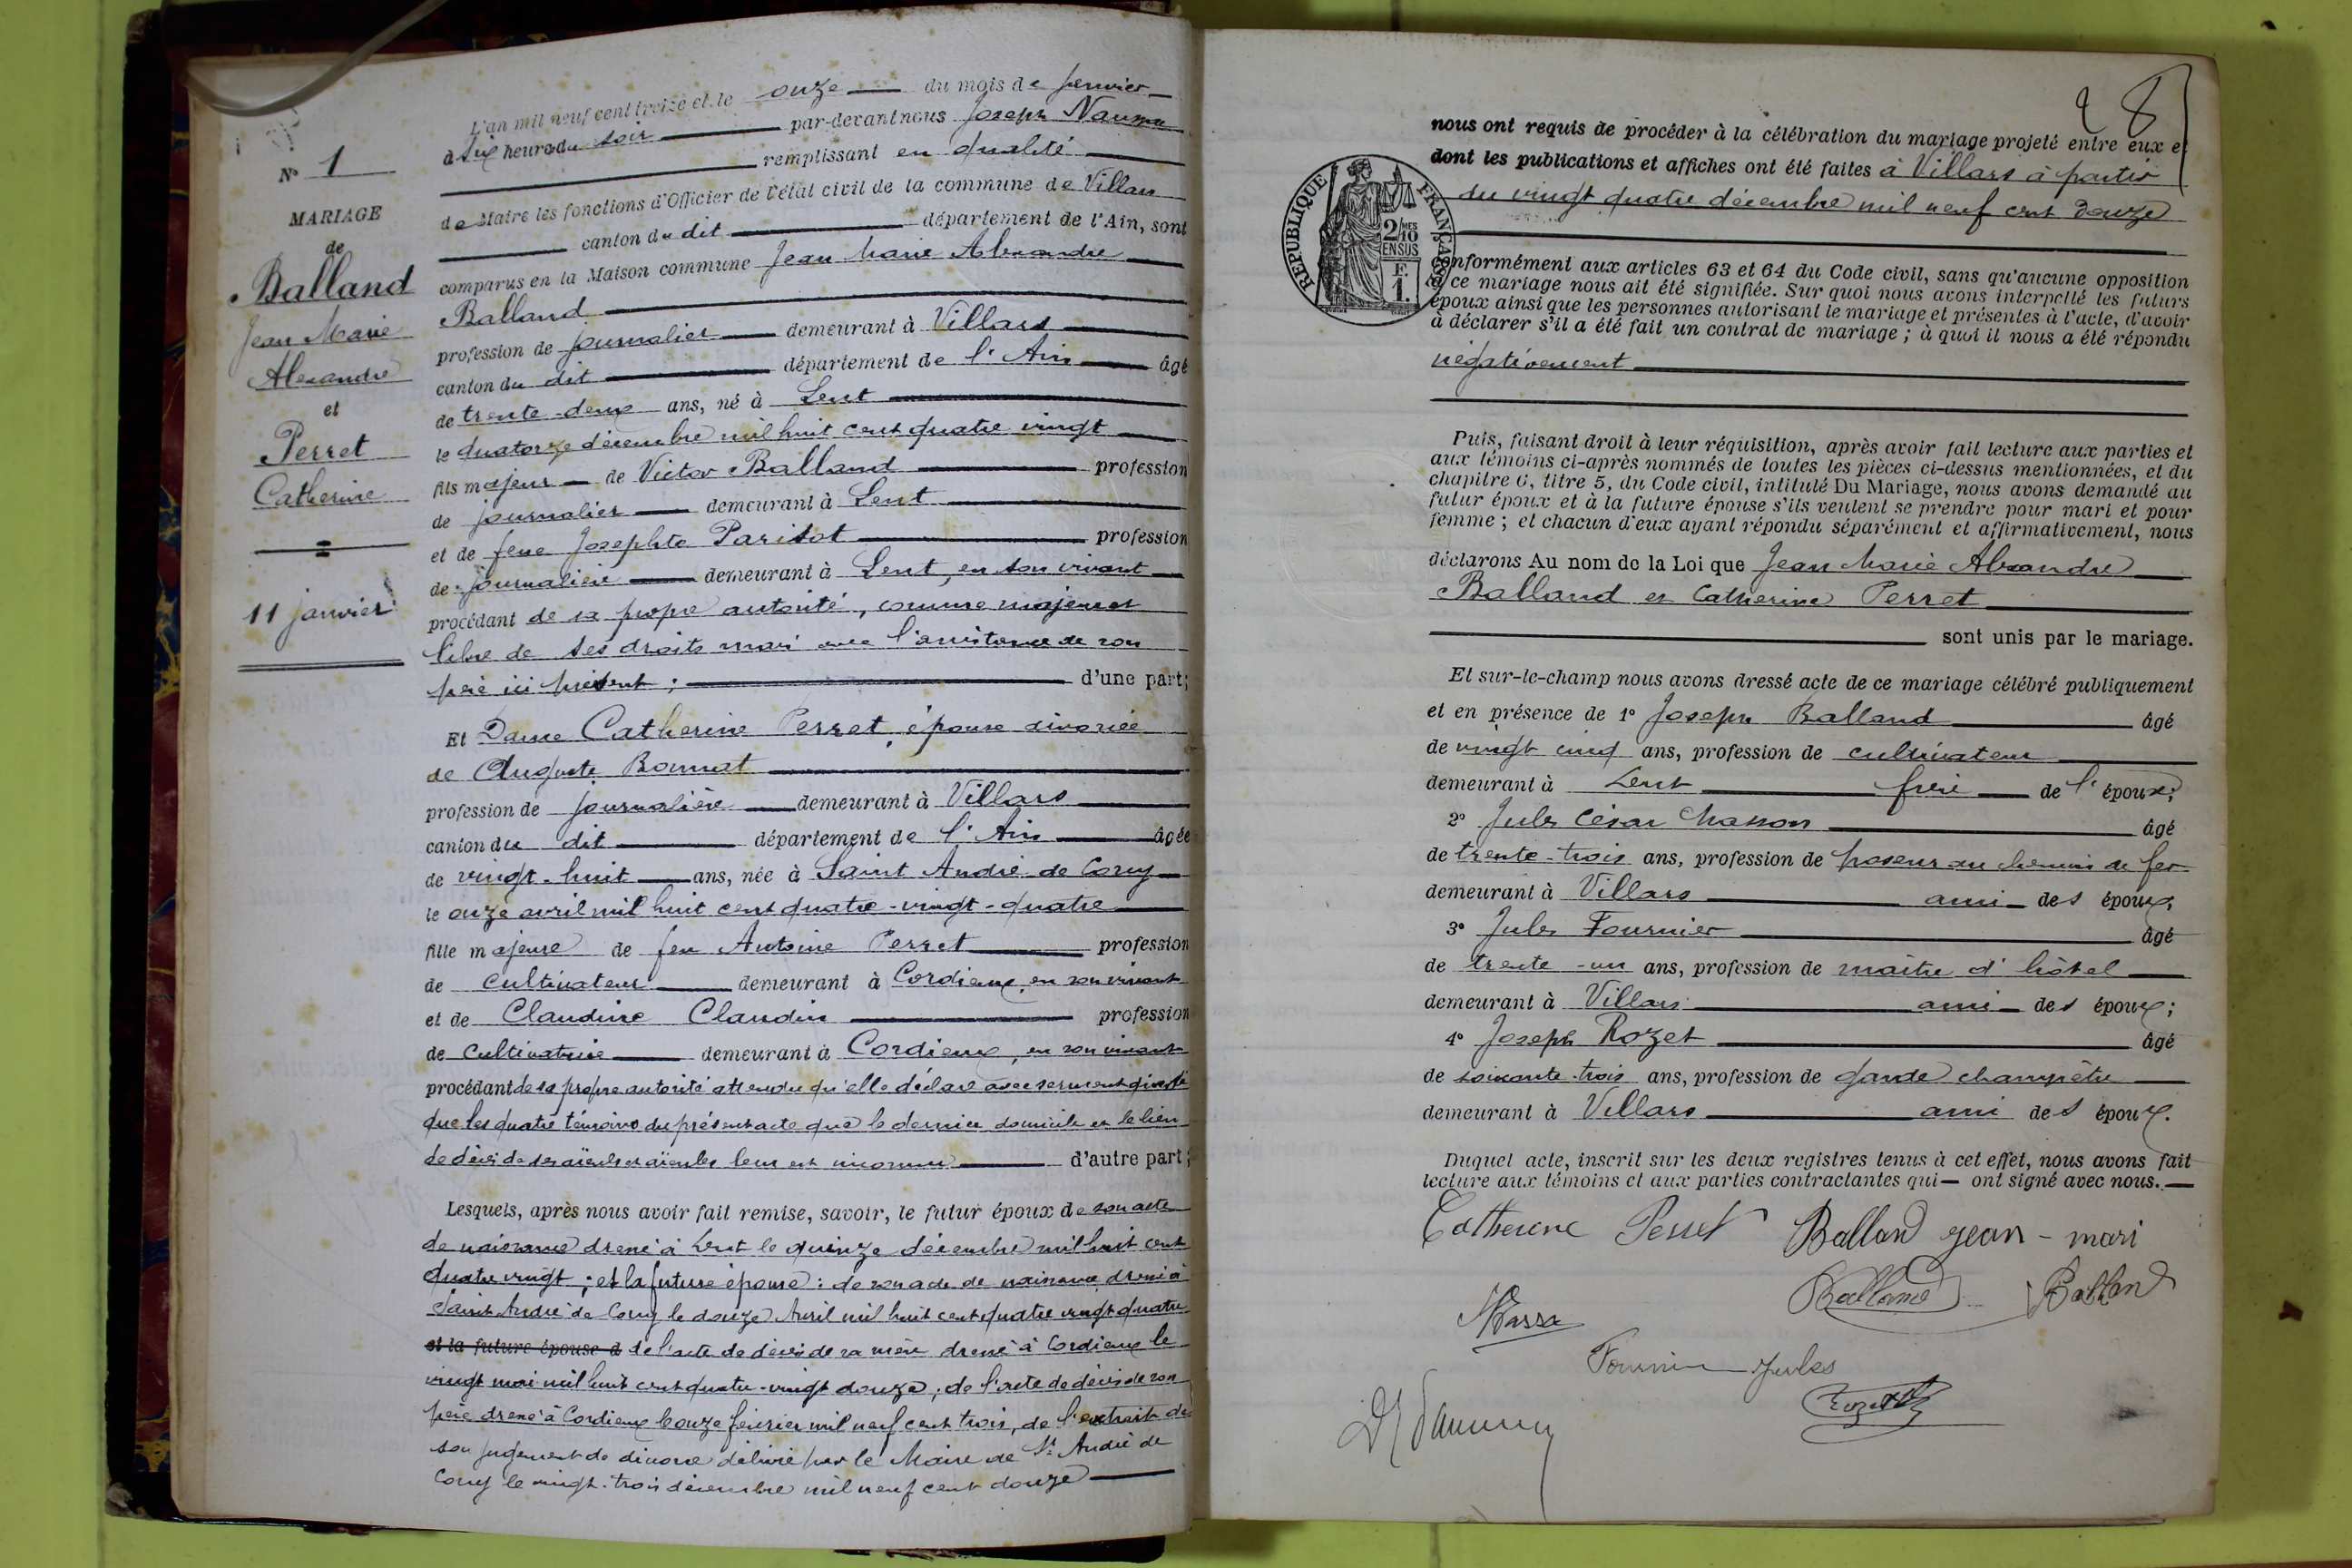 N° 1
MARIAGE
de
Balland
Jean Marie
Alexandre
et
Perret
Catherine
11 janvier
L'an mil neuf cent treize et le onze du mois de janvier
à six heures du soir par-devant nous Joseph
remplissant en qualité
de Maire les fonctions d'Officier de l'état civil de la commune de Villars
canton du dit département de l'Ain, sont
comparus en la Maison commune Jean Marie Alexandre
Balland
profession de journalier demeurant à Villars
canton du dit département de l'Ain âgé
de trente-deux ans, né à Lent
le quatorze décembre mil huit cent quatre vingt
fils majeur de Victor Balland profession
de journalier demeurant à Lent
et de feue Josephte Parisot profession
de journalière demeurant à Lent, en son vivant
procédant de sa propre autorité, comme majeur et
libre de ses droits mais avec l'assistance de son
père ici présent ; d'une part;
Et Dame Catherine Perret, épouse divorcée
de Auguste Bonnat
profession de journalière demeurant à Villars
canton du dit département de l'Ain âgée
de vingt-huit ans, née à Saint André de Corcy
le onze avril mil huit cent quatre-vingt-quatre
fille majeure de feu Antoine Perret profession
de cultivateur demeurant à Cordieux, en son vivant
et de Claudine Claudin profession
de cultivatrice demeurant à Cordieux, en son vivant
procédant de sa propre autorité attendu qu'elle déclare avec serment ainsi
que les quatre témoins du présent acte que le dernier domicile et le lieu
de décès de ses aïeuls et aïeules leur est inconnu d'autre part;
Lesquels, après nous avoir fait remise, savoir, le futur époux de son acte
de naissance dressé à Lent le quinze décembre mil huit cent
quatre vingt ; et la future épouse : de son acte de naissance dressé à
Saint André de Corcy le douze Avril mil huit cent quatre vingt quatre
et la future épouse d de l'acte de décès de sa mère dressé à Cordieux le
vingt mai mil huit cent quatre-vingt douze ; de l'acte de décès de son
père dressé à Cordieux le onze février mil neuf cent trois, de l'extrait de
son jugement de divorce délivré par le Maire de St André de
Corcy le vingt-trois décembre mil neuf cent douze
28
nous ont requis de procéder à la célébration du mariage projeté entre eux et
dont les publications et affiches ont été faites à Villars à partir
du vingt quatre décembre mil neuf cent douze
RÉPUBLIQUE FRANÇAISE
2/10 MES
EN SUS
F.
1.
conformément aux articles 63 et 64 du Code civil, sans qu'aucune opposition
à ce mariage nous ait été signifiée. Sur quoi nous avons interpellé les futurs
époux ainsi que les personnes autorisant le mariage et présentes à l'acte, d'avoir
à déclarer s'il a été fait un contrat de mariage ; à quoi il nous a été répondu
négativement
Puis, faisant droit à leur réquisition, après avoir fait lecture aux parties et
aux témoins ci-après nommés de toutes les pièces ci-dessus mentionnées, et du
chapitre 6, titre 5, du Code civil, intitulé Du Mariage, nous avons demandé au
futur époux et à la future épouse s'ils veulent se prendre pour mari et pour
femme ; et chacun d'eux ayant répondu séparément et affirmativement, nous
déclarons Au nom de la Loi que Jean Marie Alexandre
Balland et Catherine Perret
sont unis par le mariage.
Et sur-le-champ nous avons dressé acte de ce mariage célébré publiquement
et en présence de 1° Joseph Balland âgé
de vingt cinq ans, profession de cultivateur
demeurant à Lent frère de l'époux;
2° Jules César Masson âgé
de trente-trois ans, profession de poseur au chemin de fer
demeurant à Villars ami des époux,
3° Jules Fournier âgé
de trente-un ans, profession de maître d'hôtel
demeurant à Villars ami des époux;
4° Joseph Rozet âgé
de soixante-trois ans, profession de garde champêtre
demeurant à Villars ami des époux.
Duquel acte, inscrit sur les deux registres tenus à cet effet, nous avons fait
lecture aux témoins et aux parties contractantes qui ont signé avec nous.
Catherine Perret Balland jean-mari
Balland Balland
Fournier Jules
Rozet